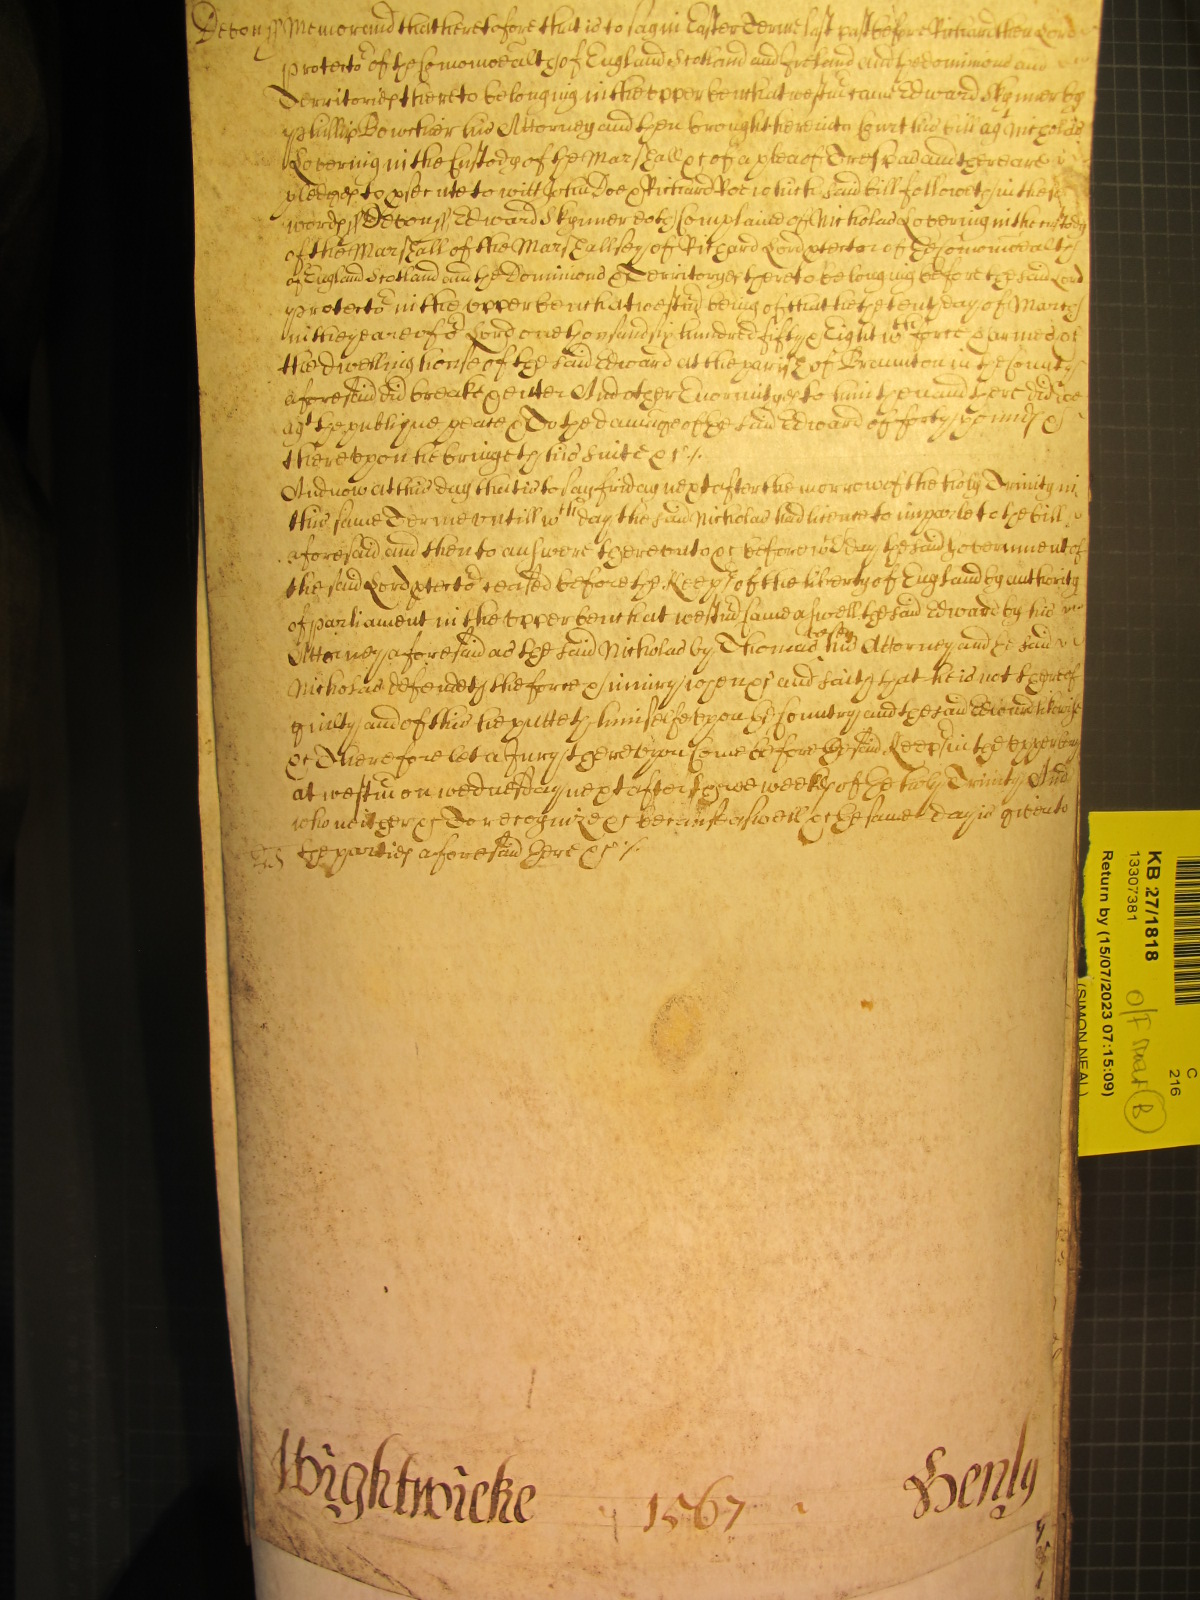 Devon ss Memorand that heretofore that is to say in Easter Terme last past before Richard then Lord
Protector of the Comonwealth of England Scotland and Ireland and the dominions and
Territories thereto belonging in the upper bench at Westmr came Edward Skynner by
Phillip Bowchier his Attorney and then brought here into Court his bill agt Nicholas
Lovering in the Custody of the Marshall &c of a plea of Trespas and there are
pledges to psecute to witt John Doe & Richard Roe which said bill followeth in these
words ss Devon ss Edward Skynner doth Complaine of Nicholas Lovering in the custody
of the Marshall of the Marshallsey of Richard Lord ptector of the Comonwealth
of England Scotland and the Dominions & Territoryes thereto belonging before the said Lord
Protector in the upper bench at Westmr being of that he the tenth day of March
in the yeare of or Lord one thousand six hundred fifty & Eight wth force & armes &c
the dwelling house of the said Edward at the parish of Braunton in the County
aforesaid did breake & enter And other Enormityes to him then and there did &c
agt the publique peace & To the damage of the said Edward of forty pounds &
thereupon he bringeth his suite &c ./.
And now at this day that is to say friday next after the morrow of the holy Trinity in
this same Terme untill wch day the said Nicholas had licence to imparle to the bill
aforesaid and then to answere thereunto &c before wch day the said Government of
the said Lord ptector ceased before the Keeps of the liberty of England by authority
of parliament in the upper bench at Westmr came aswell the said Edward by his
Attorney aforesaid as the said Nicholas by Thomas his Attorney and the said
Nicholas defendeth the force & iniury when &c and saith that he is not thereof
guilty and of this he putteth himselfe upon the Country and the said Edward likewise
&c Therefore let a Jury thereupon come before the said Keeps in the upper bench
at Westmr on wednesday next after three weekes of the holy Trinity And
who neither &c To recognize &c because aswell &c the same day is given to
the parties aforesaid here &c ./.
Wightwicke 1567 Henly
KB 27/1818
13307381
Return by (15/07/2023 07:15:09)
(SIMON NEAL)
C
216
O/F
B